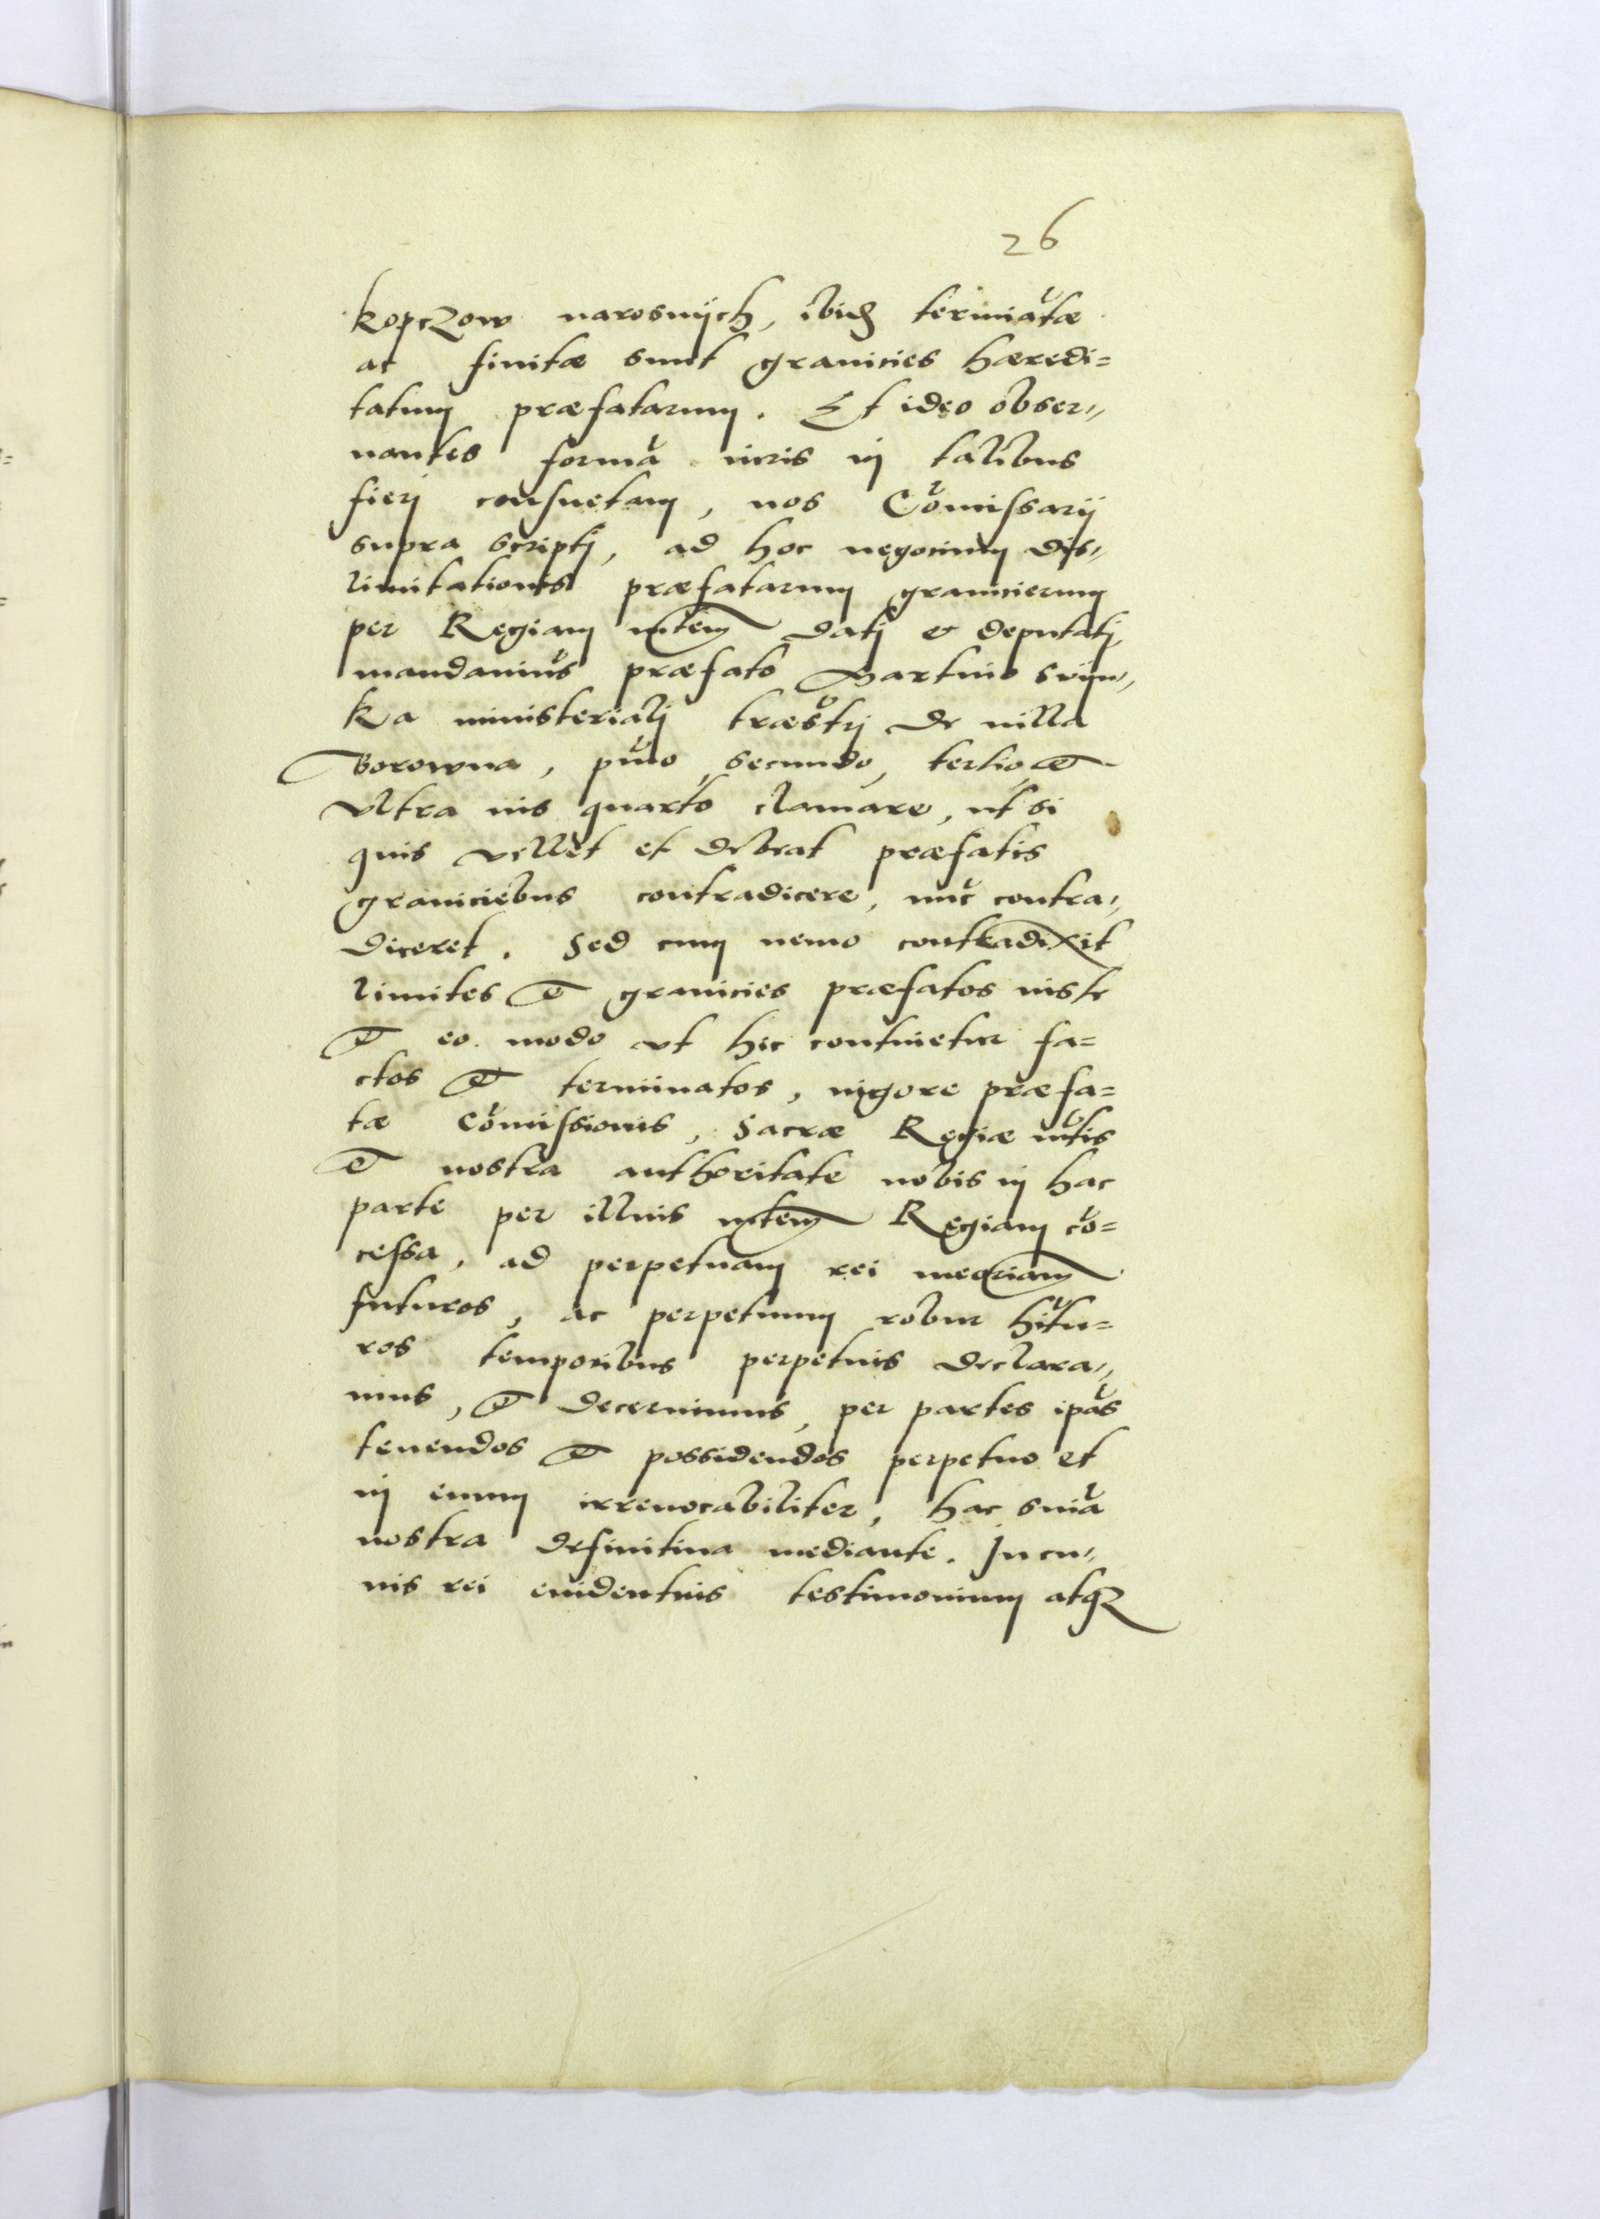 26
kopczow narosnijch, ibid(em) terminatæ
ac finitæ sunt granicies hæredi=
tatum præfatarum. Et ideo obser„
uantes formã iuris in talibus
fieri consuetam, nos Cõmissarij
supra scripti, ad hoc negocium dis„
limitationis præfatarum granicierum
per Regiam mtem dati & deputati,
mandauimus præfato Martino
ka ministeriali træstri de uilla
Borowna, pũo, secundo, tertio, et
vltra ius quarto clamare, ut si
quis vellet et debeat præfatis
graniciebus contradicere, nũc contra„
diceret. Sed cum nemo contradixit
limites et granicies præfatos iuste
et eo modo vt hic continetur fa=
ctos et terminatos, uigore præfa=
tæ Cõmissionis, Sacræ Regiæ mtis
et nostra authoritate nobis in hac
parte per illius mtem Regiam cõ=
cessa, ad perpetuam rei meoriam
futuros, ac perpetuum robur hitu=
ros temporibus perpetuis declara„
mus, et decernimus, per partes ipãs
tenendos et possidendos perpetuo et
in euum irreuocabiliter, hac sniã
nostra definitiua mediante. In cu„
ius rei euidentius testimonium atq3